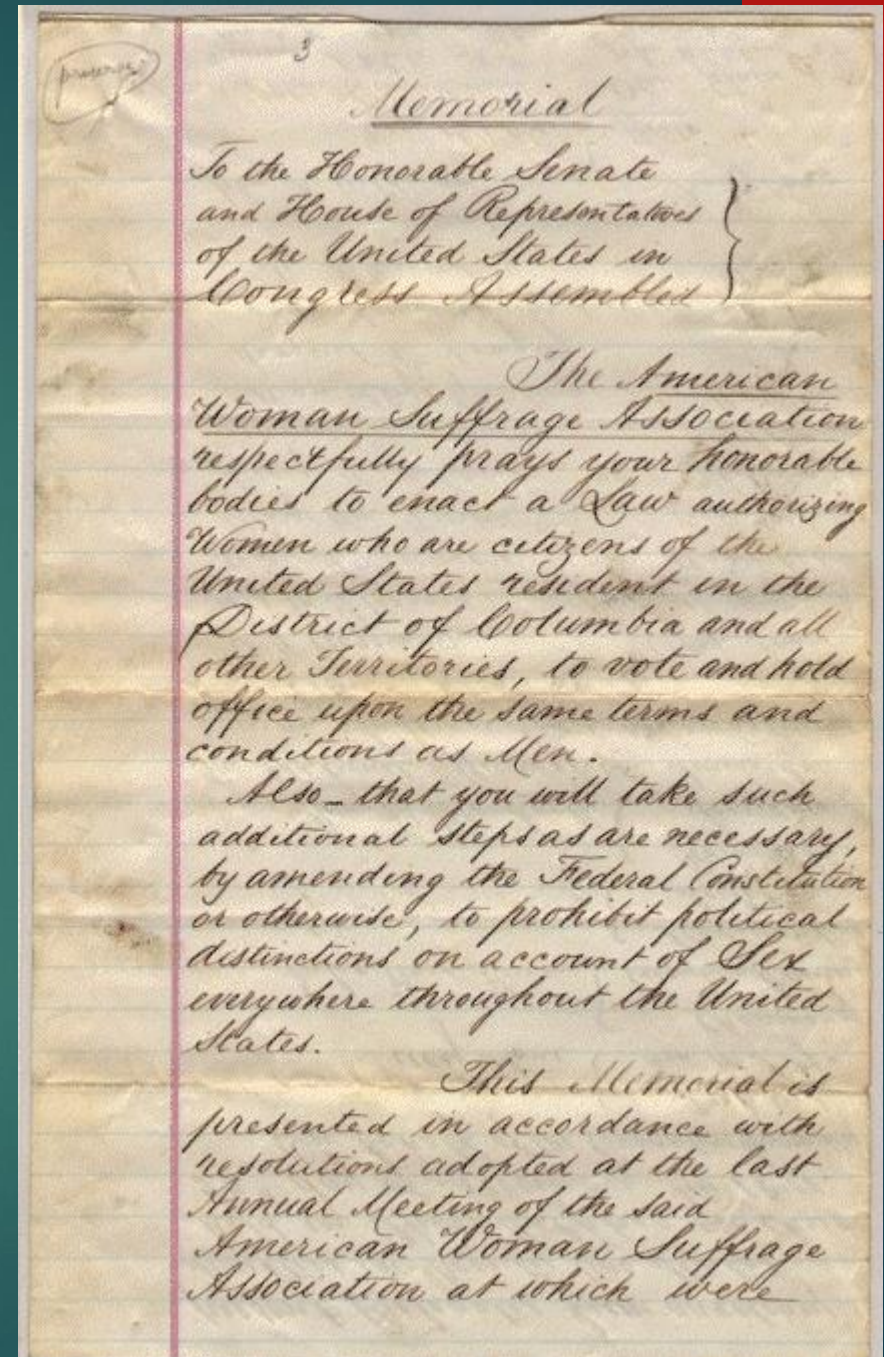 3
preserve
Memorial
To the Honorable Senate
and House of Representatives
of the United States in
Congress Assembled
The American
Woman Suffrage Association
respectfully prays your honorable
bodies to enact a Law authorizing
Women who are citizens of the
United States resident in the
District of Columbia and all
other Territories, to vote and hold
office upon the same terms and
conditions as Men.
Also - that you will take such
additional steps as are necessary,
by amending the Federal Constitution
or otherwise, to prohibit political
distinctions on account of Sex
everywhere throughout the United
States.
This Memorial is
presented in accordance with
resolutions adopted at the last
Annual Meeting of the said
American Woman Suffrage
Association at which were